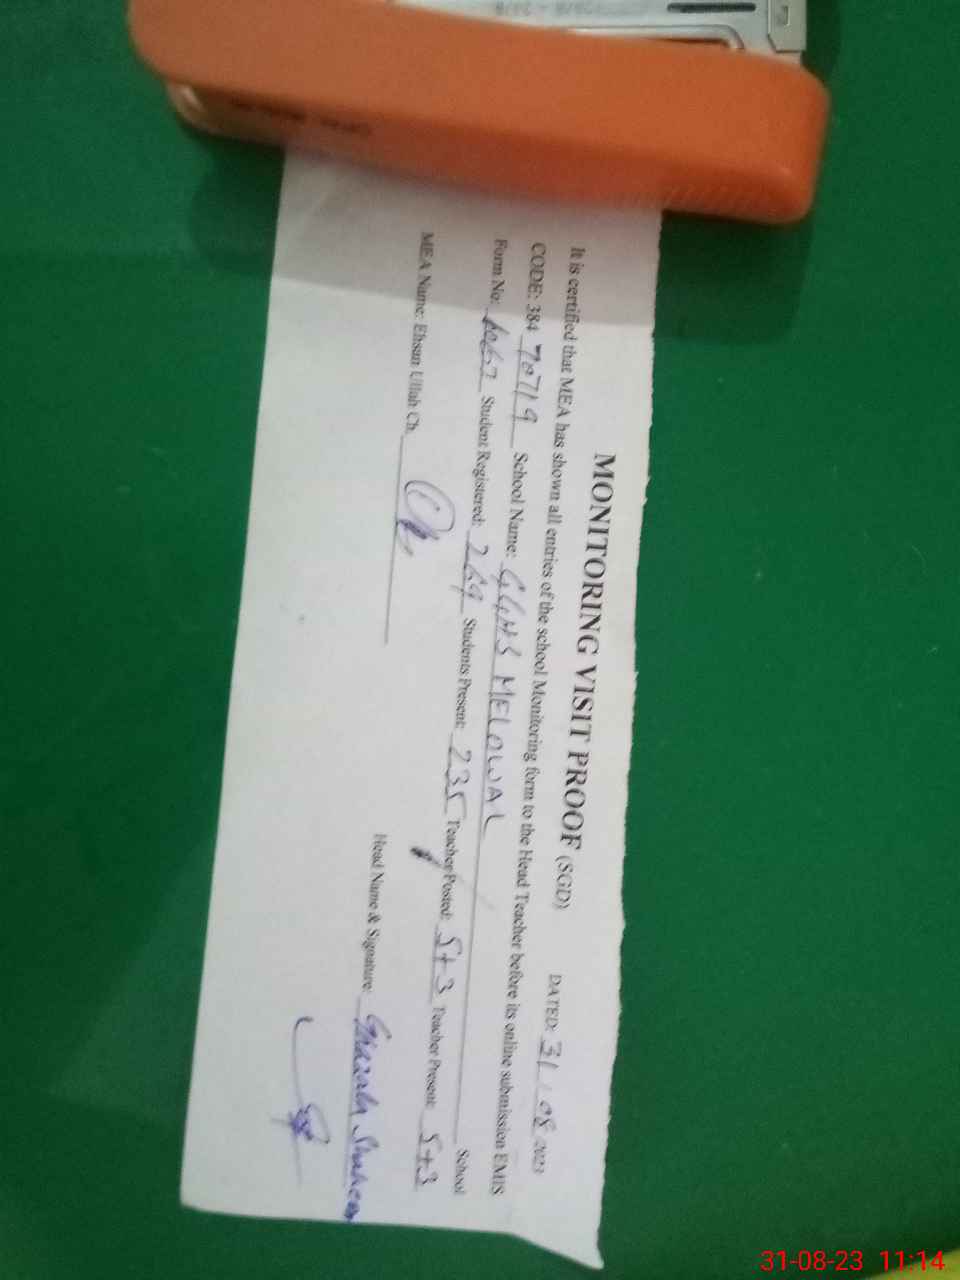 MONITORING VISIT PROOF (SGD)
DATED: 31.08.2023
It is certified that MEA has shown all entries of the school Monitoring form to the Head Teacher before its online submission EMIS
CODE: 384 78719 School Name: GGHS MELOWAL School
Form No: Student Registered: 269 Students Present: 235 Teacher Posted: 5+3 Teacher Present: 5+3
MEA Name: Ehsan Ullah Ch.
Head Name & Signature: Ghazala Shaheen
31-08-23 11:14